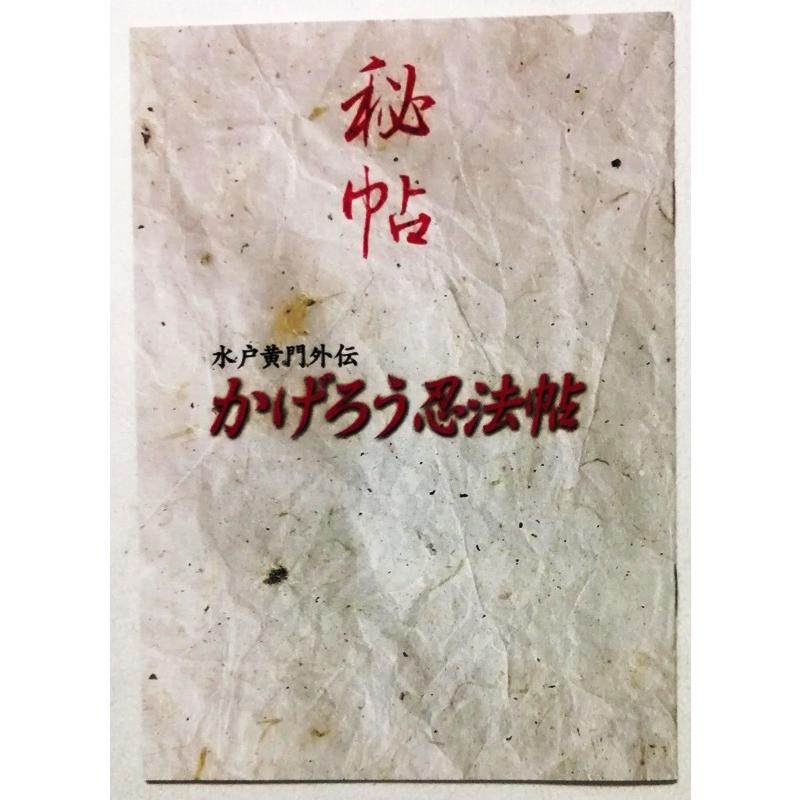 秘帖
水戸黄門外伝
かげろう忍法帖